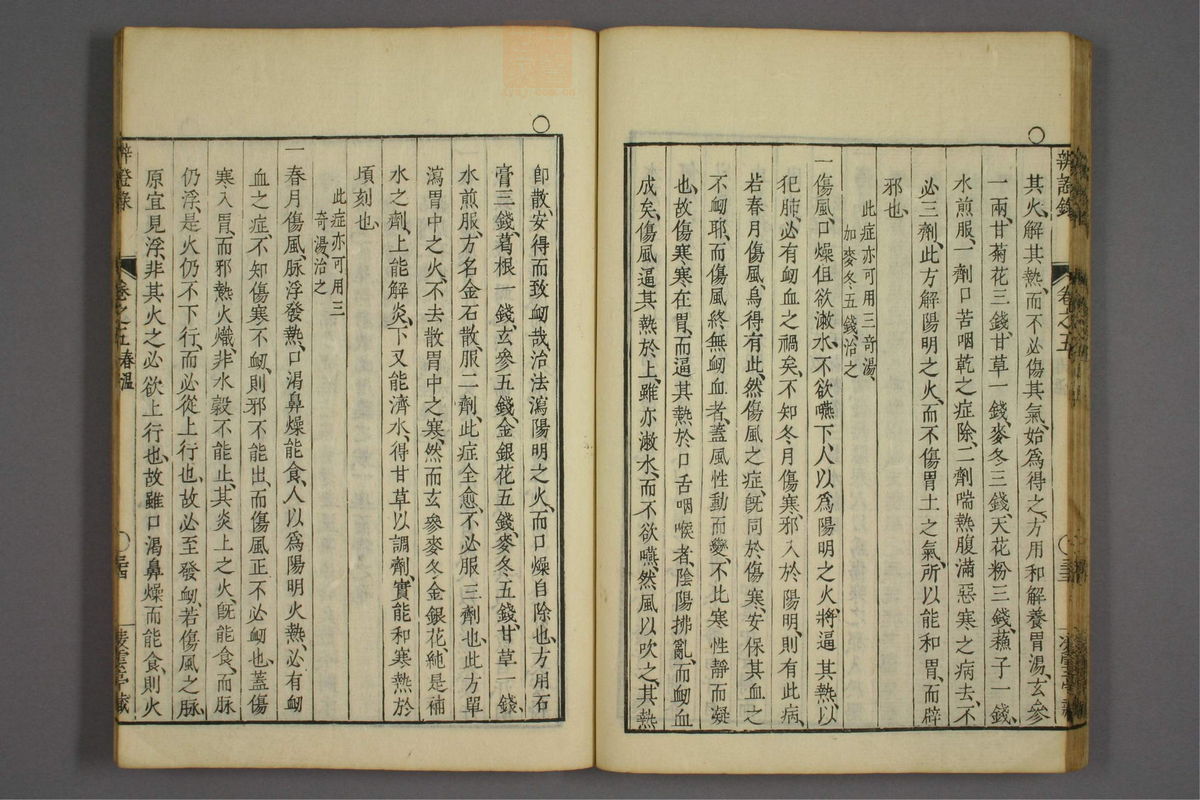 辨證錄
卷之五
其火、解其熱、而不必傷其氣、始爲得之、方用和解養胃湯、玄參
一兩、甘菊花三錢、甘草一錢、麥冬三錢、天花粉三錢、蘇子一錢、
水煎服、一劑口苦咽乾之症除、二劑喘熱腹滿惡寒之病去、不
必三劑、此方解陽明之火、而不傷胃土之氣、所以能和胃、而辟
邪也、
此症亦可用三奇湯、
加麥冬五錢治之
一傷風、口燥但欲漱水、不欲嚥下、人以爲陽明之火、將逼其熱、以
犯肺、必有衂血之禍矣、不知冬月傷寒、邪入於陽明、則有此病、
若春月傷風、烏得有此、然傷風之症、旣同於傷寒、安保其血之
不衂耶、而傷風終無衂血者、蓋風性動而變、不比寒性靜而凝
也、故傷寒寒在胃、而逼其熱於口舌咽喉者、陰陽拂亂、而衂血
成矣、傷風逼其熱於上、雖亦漱水、而不欲嚥、然風以吹之、其熱
卽散、安得而致衂哉、治法瀉陽明之火、而口燥自除也、方用石
膏三錢、葛根一錢、玄參五錢、金銀花五錢、麥冬五錢、甘草一錢、
水煎服、方名金石散、服二劑、此症全愈、不必服三劑也、此方單
瀉胃中之火、不去散胃中之寒、然而玄參麥冬金銀花、純是補
水之劑、上能解炎、下又能濟水、得甘草以調劑、實能和寒熱於
頃刻也、
此症亦可用三
奇湯治之
一春月傷風、脉浮發熱、口渴鼻燥能食、人以爲陽明火熱、必有衂
血之症、不知傷寒不衂、則邪不能出、而傷風正不必衂也、蓋傷
寒入胃、而邪熱火熾、非水穀不能止、其炎上之火、旣能食、而脉
仍浮、是火仍不下行、而必從上行也、故必至發衂、若傷風之脉、
原宜見浮、非其火之必欲上行也、故雖口渴鼻燥而能食、則火
辨證錄
卷之五 春溫
三十四